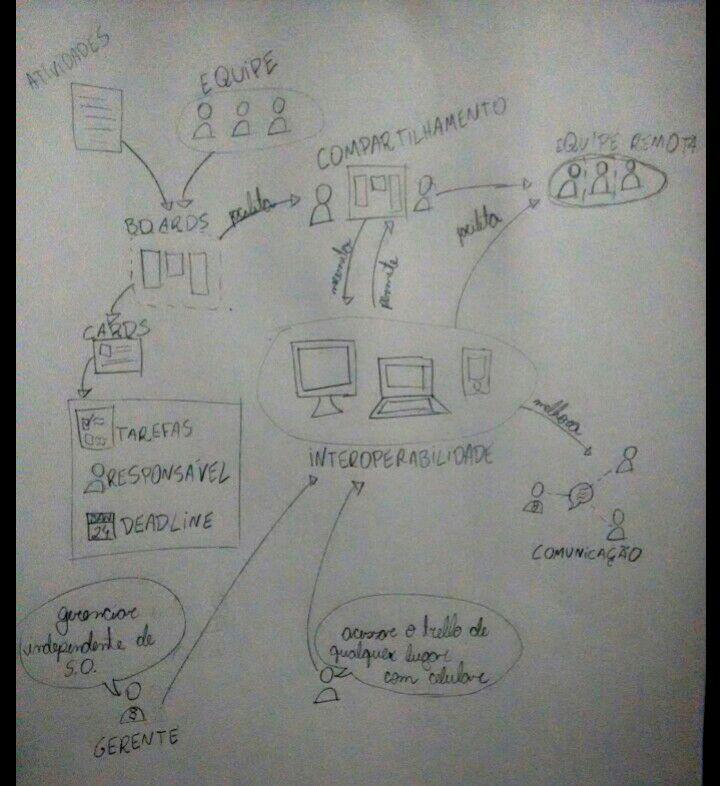 ATIVIDADES
EQUIPE
COMPARTILHAMENTO
EQUIPE REMOTA
BOARDS
facilita
necessita
permite
facilita
CARDS
TAREFAS
RESPONSÁVEL
JAN
24
DEADLINE
INTEROPERABILIDADE
melhora
COMUNICAÇÃO
gerenciar
independente de
S.O.
GERENTE
acessar o trello de
qualquer lugar
com celular